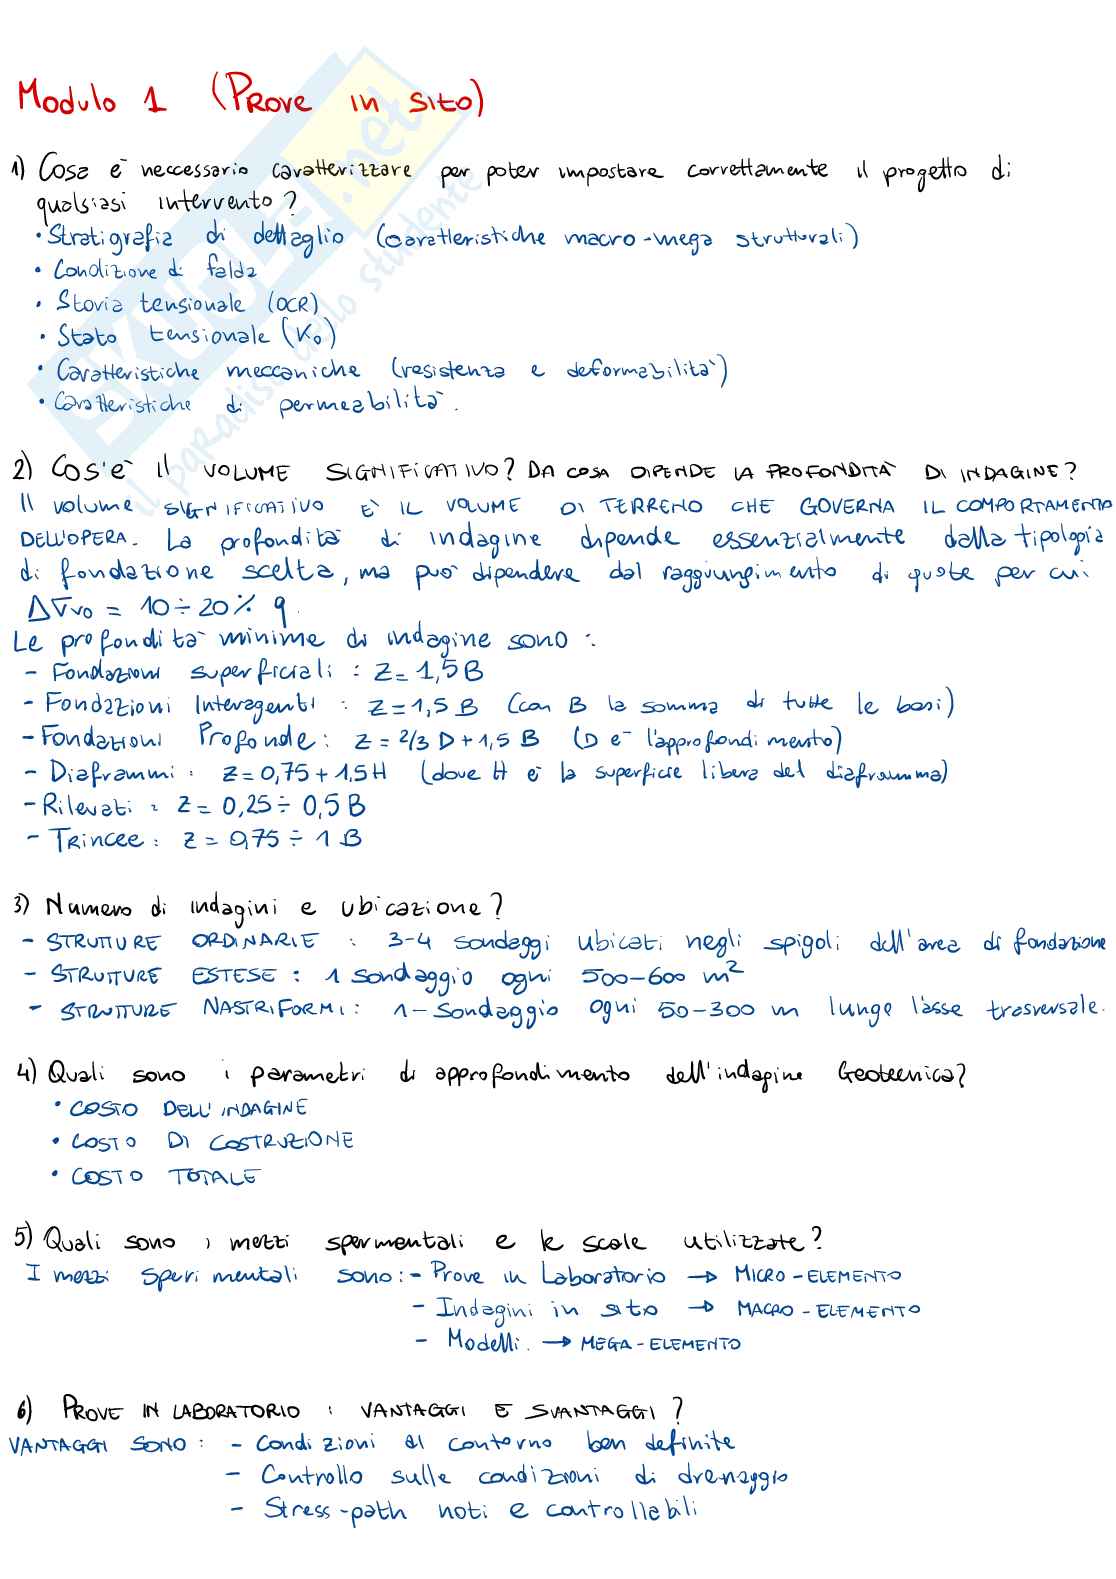 Modulo 1 (Prove in sito)
1) Cosa è neccessario caratterizzare per poter impostare correttamente il progetto di
qualsiasi intervento?
• Stratigrafia di dettaglio (caratteristiche macro-mega strutturali)
• Condizione di falda
• Storia tensionale (OCR)
• Stato tensionale (K₀)
• Caratteristiche meccaniche (resistenza e deformabilità)
• Caratteristiche di permeabilità.
2) Cos'è il VOLUME SIGNIFICATIVO? DA COSA DIPENDE LA PROFONDITÀ DI INDAGINE?
Il volume SIGNIFICATIVO È IL VOLUME DI TERRENO CHE GOVERNA IL COMPORTAMENTO
DELL'OPERA. La profondità di indagine dipende essenzialmente dalla tipologia
di fondazione scelta, ma può dipendere dal raggiungimento di quote per cui
Δσv0 = 10÷20% q.
Le profondità minime di indagine sono:
- Fondazioni superficiali: Z=1,5B
- Fondazioni Interagenti: Z=1,5 B (con B la somma di tutte le basi)
- Fondazioni Profonde: Z = 2/3 D + 1,5 B (D è l'approfondimento)
- Diaframmi: Z=0,75+1,5H (dove H è la superficie libera del diaframma)
- Rilevati: Z= 0,25 ÷ 0,5 B
- Trincee: Z = 0,75 ÷ 1 B
3) Numero di indagini e ubicazione?
- STRUTTURE ORDINARIE: 3-4 sondaggi ubicati negli spigoli dell'area di fondazione
- STRUTTURE ESTESE: 1 sondaggio ogni 500-600 m²
- STRUTTURE NASTRIFORMI: 1-Sondaggio ogni 50-300 m lungo l'asse trasversale.
4) Quali sono i parametri di approfondimento dell'indagine Geotecnica?
• COSTO DELL'INDAGINE
• COSTO DI COSTRUZIONE
• COSTO TOTALE
5) Quali sono i mezzi spermentali e le scale utilizzate?
I mezzi sperimentali sono: - Prove in Laboratorio → MICRO-ELEMENTO
- Indagini in sito → MACRO-ELEMENTO
- Modelli. → MEGA-ELEMENTO
6) PROVE IN LABORATORIO: VANTAGGI E SVANTAGGI?
VANTAGGI SONO: - Condizioni al contorno ben definite
- Controllo sulle condizioni di drenaggio
- Stress-path noti e controllabili
SKUOLA.net
il paradiso dello studente